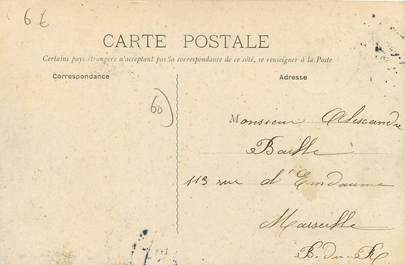 6 €
CARTE POSTALE
Certains pays étrangers n'acceptant pas la correspondance de ce côté, se renseigner à la Poste
Correspondance
Adresse
60)
Monsieur Alexandre
113 rue d'Endoume
Marseille
B. du R